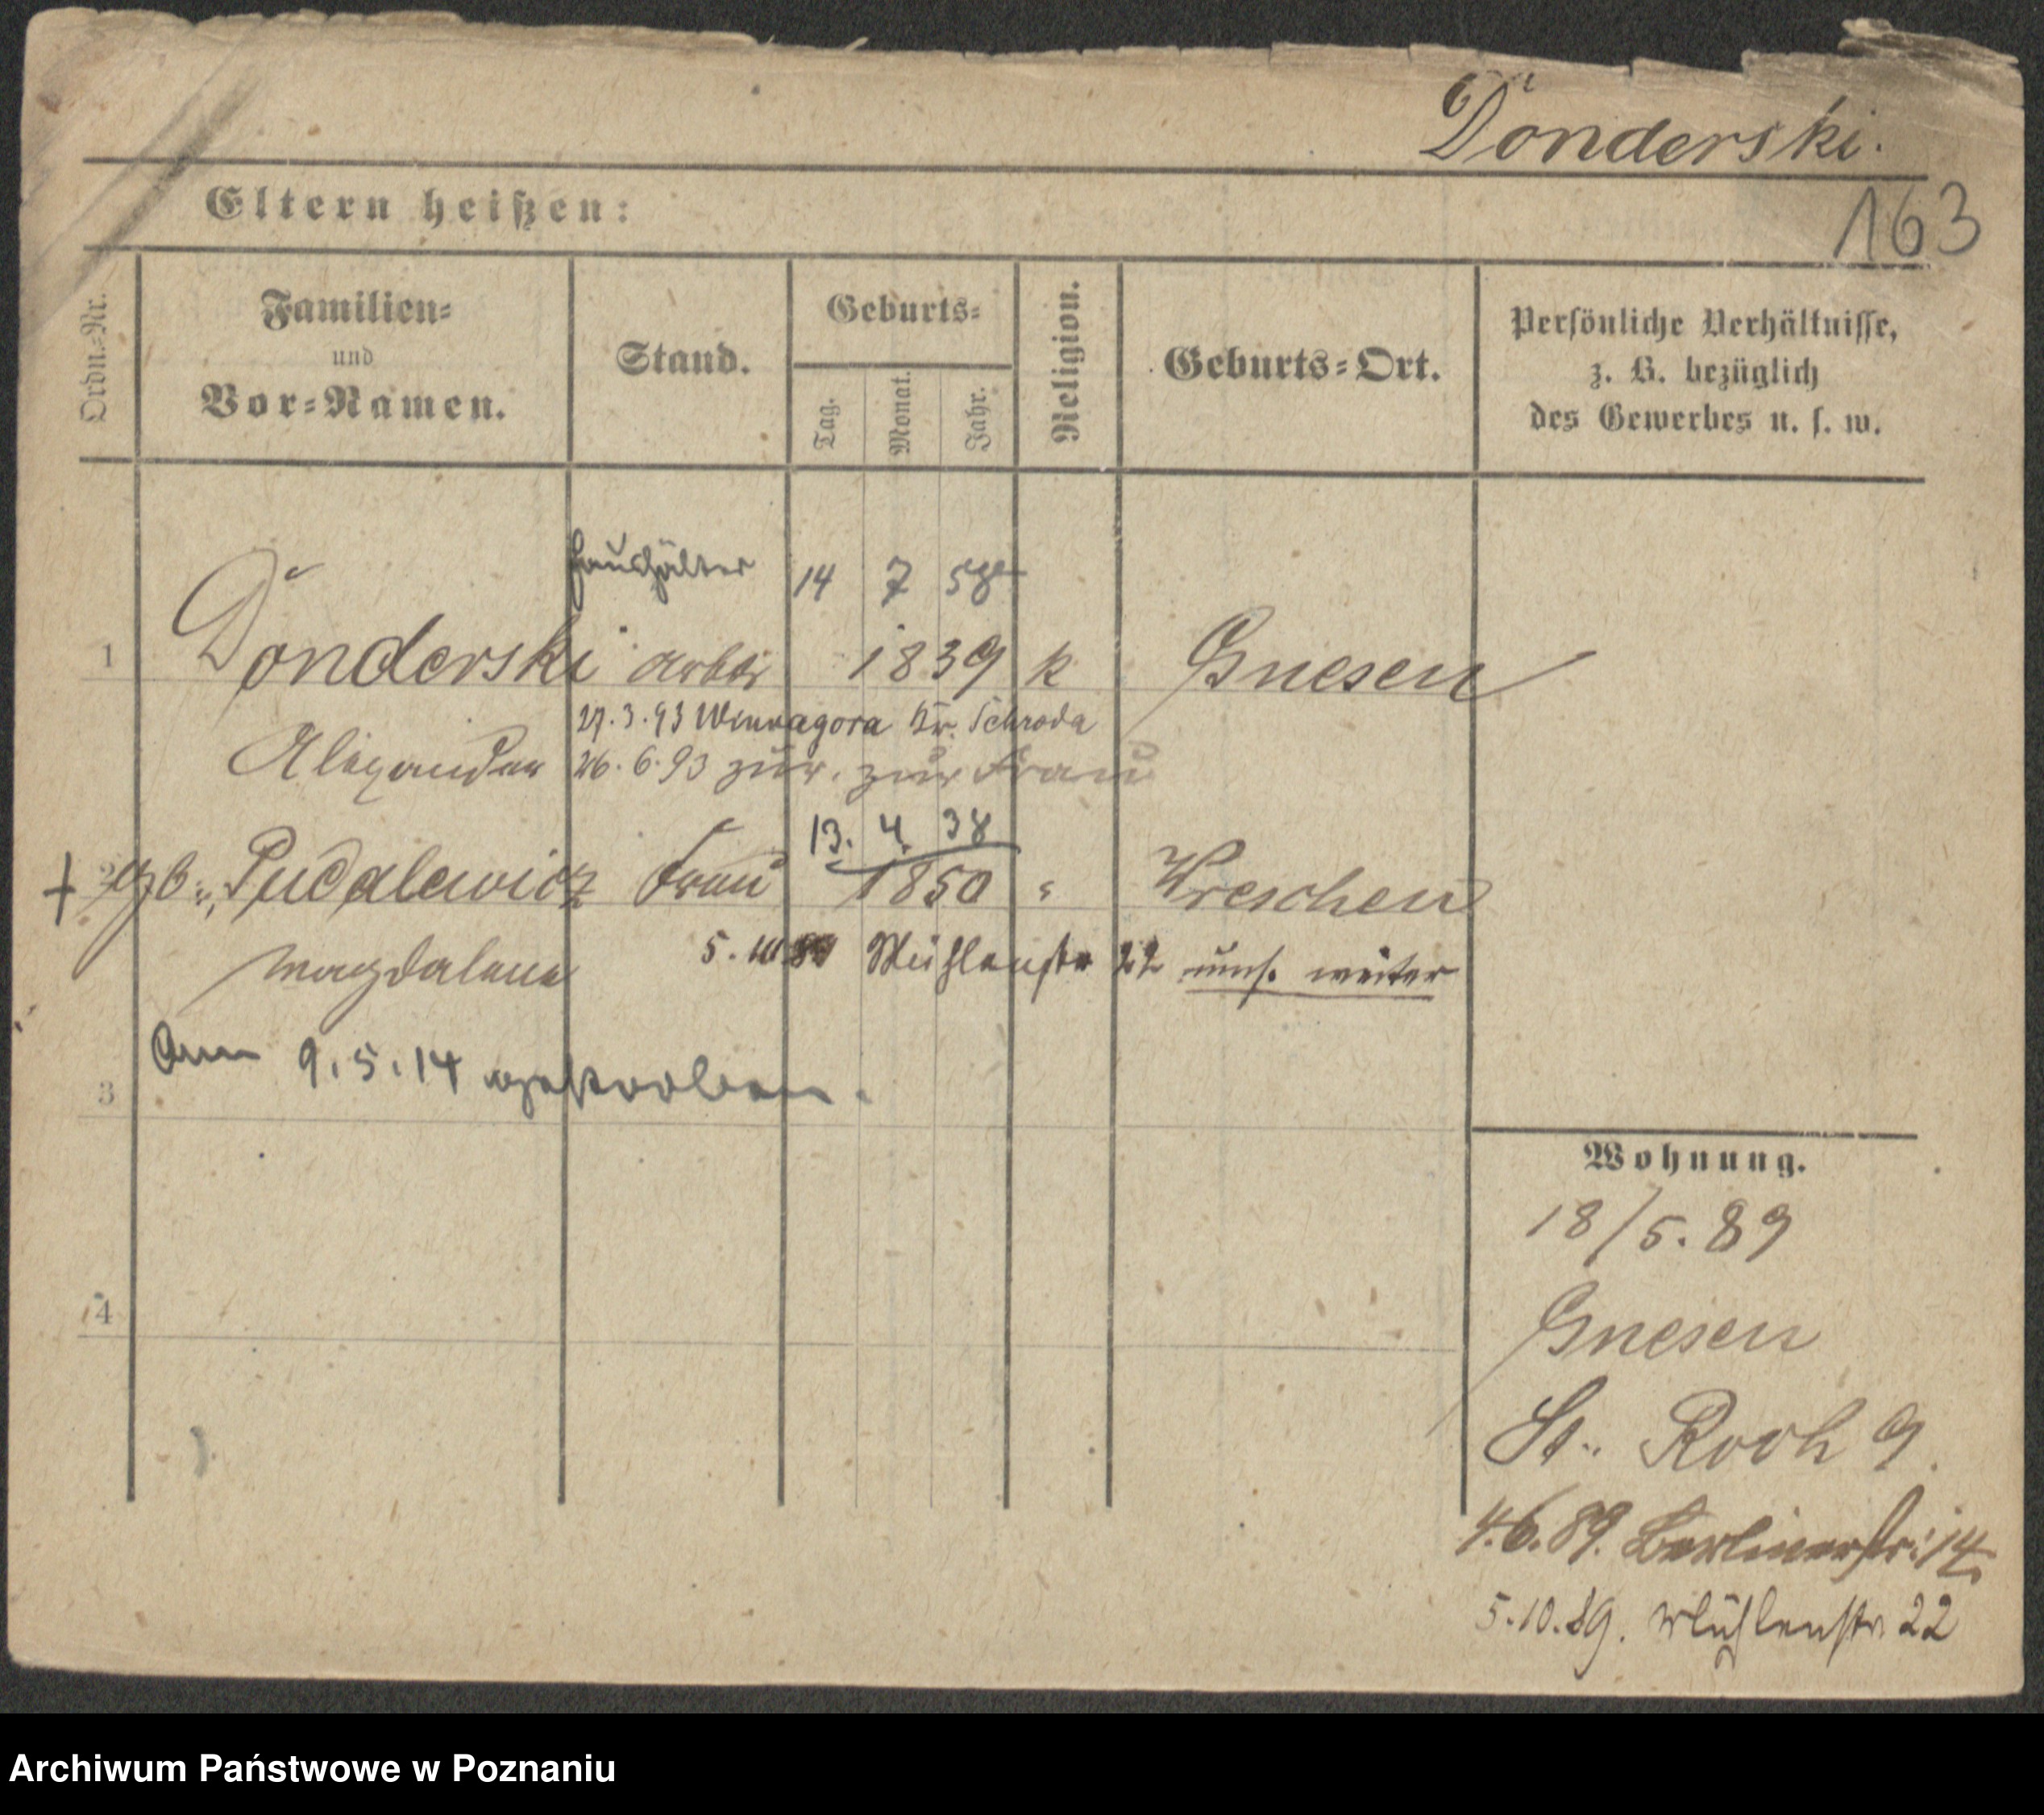 Donderski.
163
Eltern heißen:
Ordn.=Nr.
Familien=
und
Vor=Namen.
Stand.
Geburts=
Tag.
Monat.
Jahr.
Religion.
Geburts=Ort.
Persönliche Verhältnisse,
z. B. bezüglich
des Gewerbes u. s. w.
Haushälter 14 7 58
1 Donderski Arbtr 1839 k Gnesen
27.3.93 Winnagora Kr. Schroda
Alexander 26.6.93 zur. zur Frau
13. 4. 38
+ 2 geb. Pudalewicz Frau 1850 " Wreschen
Magdalena 5.10.89 Mühlenstr 22 weiter
Am 9.5.14 gestorben.
3
4
Wohnung.
18/5.89
Gnesen
St. Roch 9.
4.6.89. Berlinerstr: 14.
5.10.89. Mühlenstr. 22
Archiwum Państwowe w Poznaniu